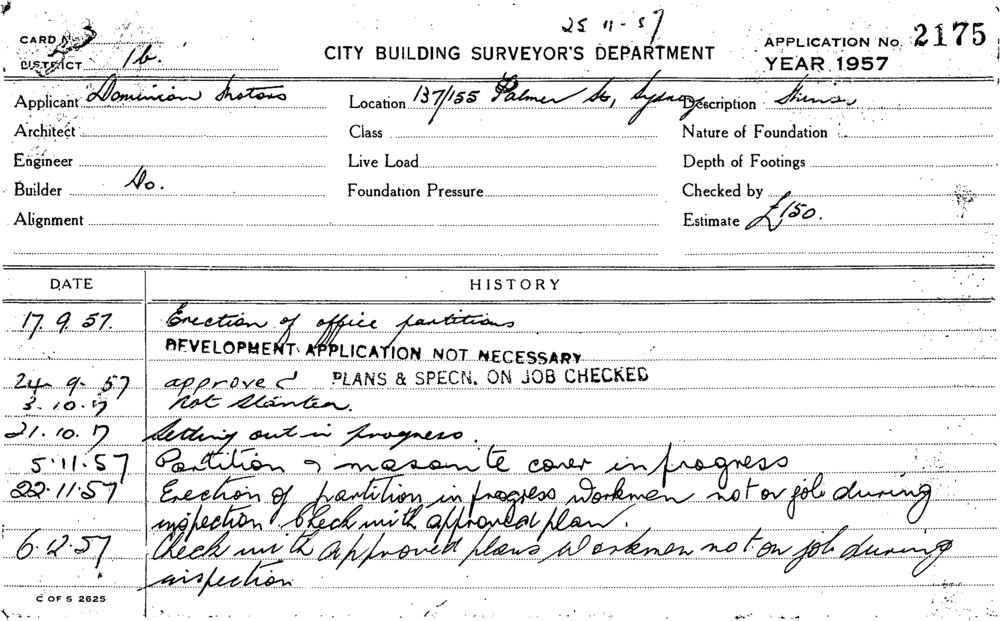 25 11-57
CARD No. 3
CITY BUILDING SURVEYOR'S DEPARTMENT
APPLICATION No. 2175
DISTRICT 1b.
YEAR 1957
Applicant Dominion Motors Location 137/155 Palmer St, Sydney Description
Architect Class Nature of Foundation
Engineer Live Load Depth of Footings
Builder Do. Foundation Pressure Checked by
Alignment Estimate £150.
DATE HISTORY
17. 9. 57. Erection of office partitions
DEVELOPMENT APPLICATION NOT NECESSARY
24. 9. 57 approved PLANS & SPECN. ON JOB CHECKED
3.10.7 Not Started.
21.10.7 Setting out in progress.
5.11.57 Partition & masonite cover in progress
22.11.57 Erection of partition in progress Workmen not on job during
inspection. Check with approved plan.
6.2.57 Check with approved plans Workmen not on job during
inspection
C OF S 2625